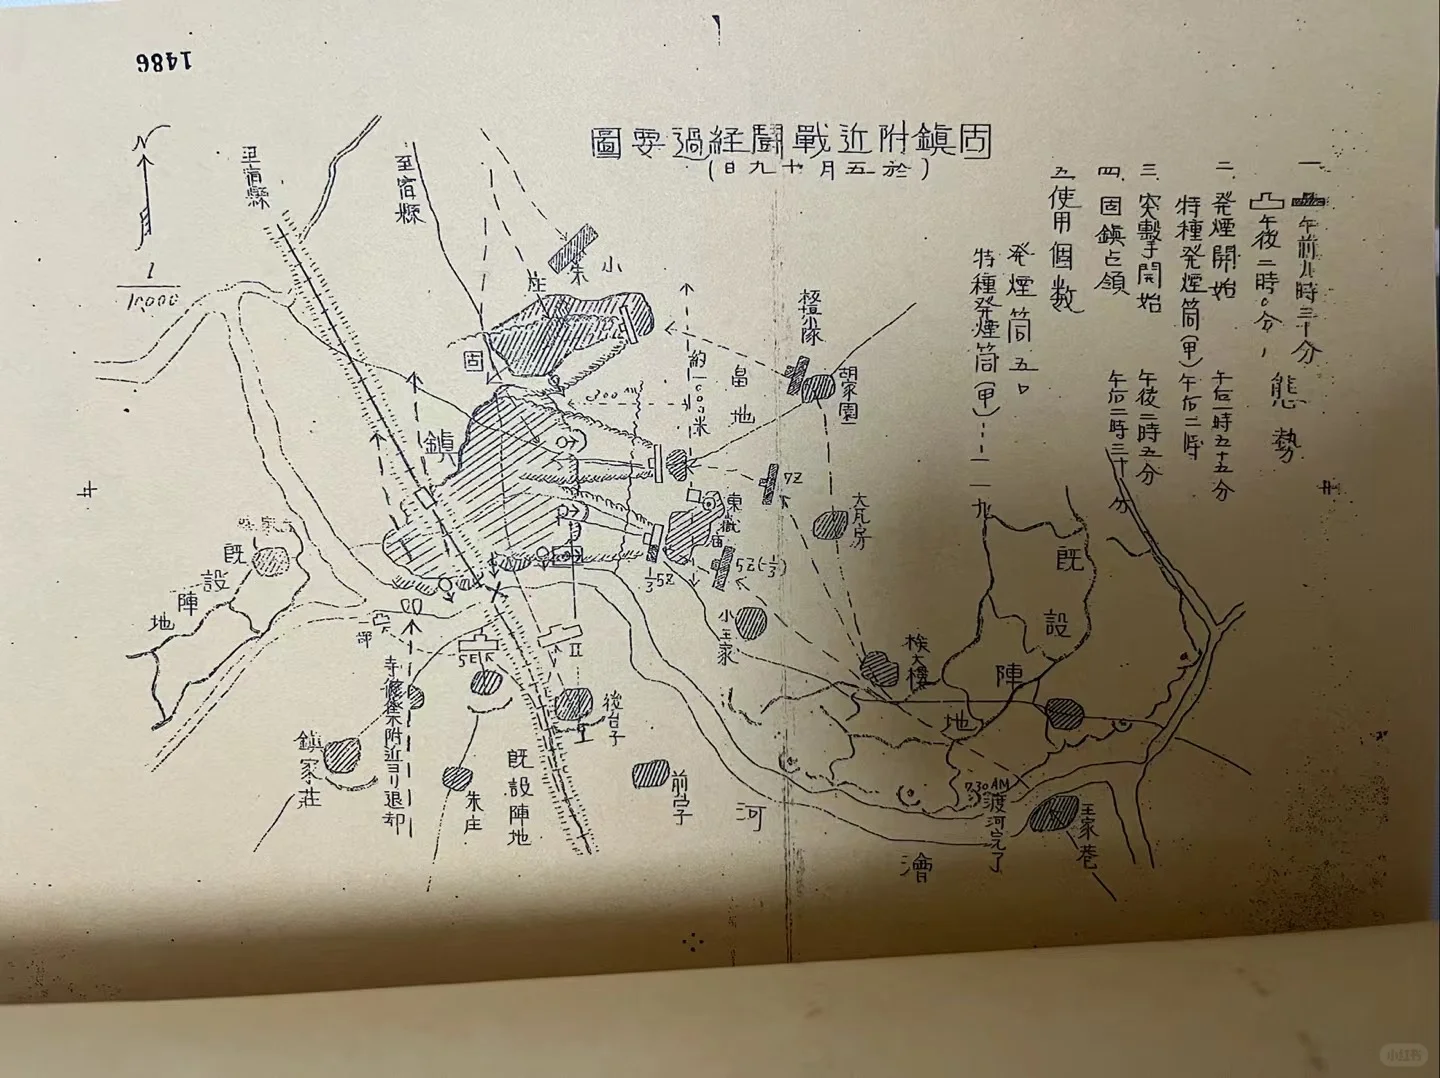 1486
固鎮附近戰鬪経過要圖
(於五月十九日)
一、午前九時三十分
午後二時〇分、態勢
二、発煙開始 午后一時五十五分
特種発煙筒(甲) 午后二時
三、突擊開始 午後二時五分
四、固鎮占領 午后二時三十分
五、使用個数
発煙筒五〇
特種発煙筒(甲)……一一九
N
1/10,000
至宿縣
至宿縣
小朱庄
固鎮
約一〇〇〇米
300m
畠地
胡家園
7Z
大瓦房
東嶽庙
5Z(1/3)
1/3 5Z
小王家
既設陣地
既設陣地
一部
5Ei
II
後台子
鎮家庄
朱庄
既設陣地
前字
河
澮
7.30AM
渡河完了
王家巷